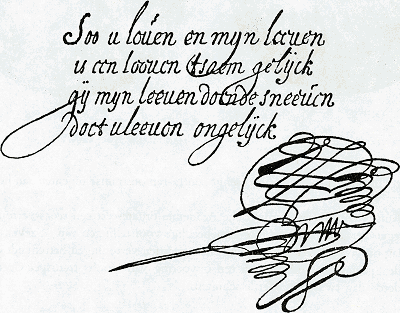 Soo u loúen en myn leeven
u een looven tsaem gelijck
gij mijn leeven doende sneeúen
doet u leeven ongelijck